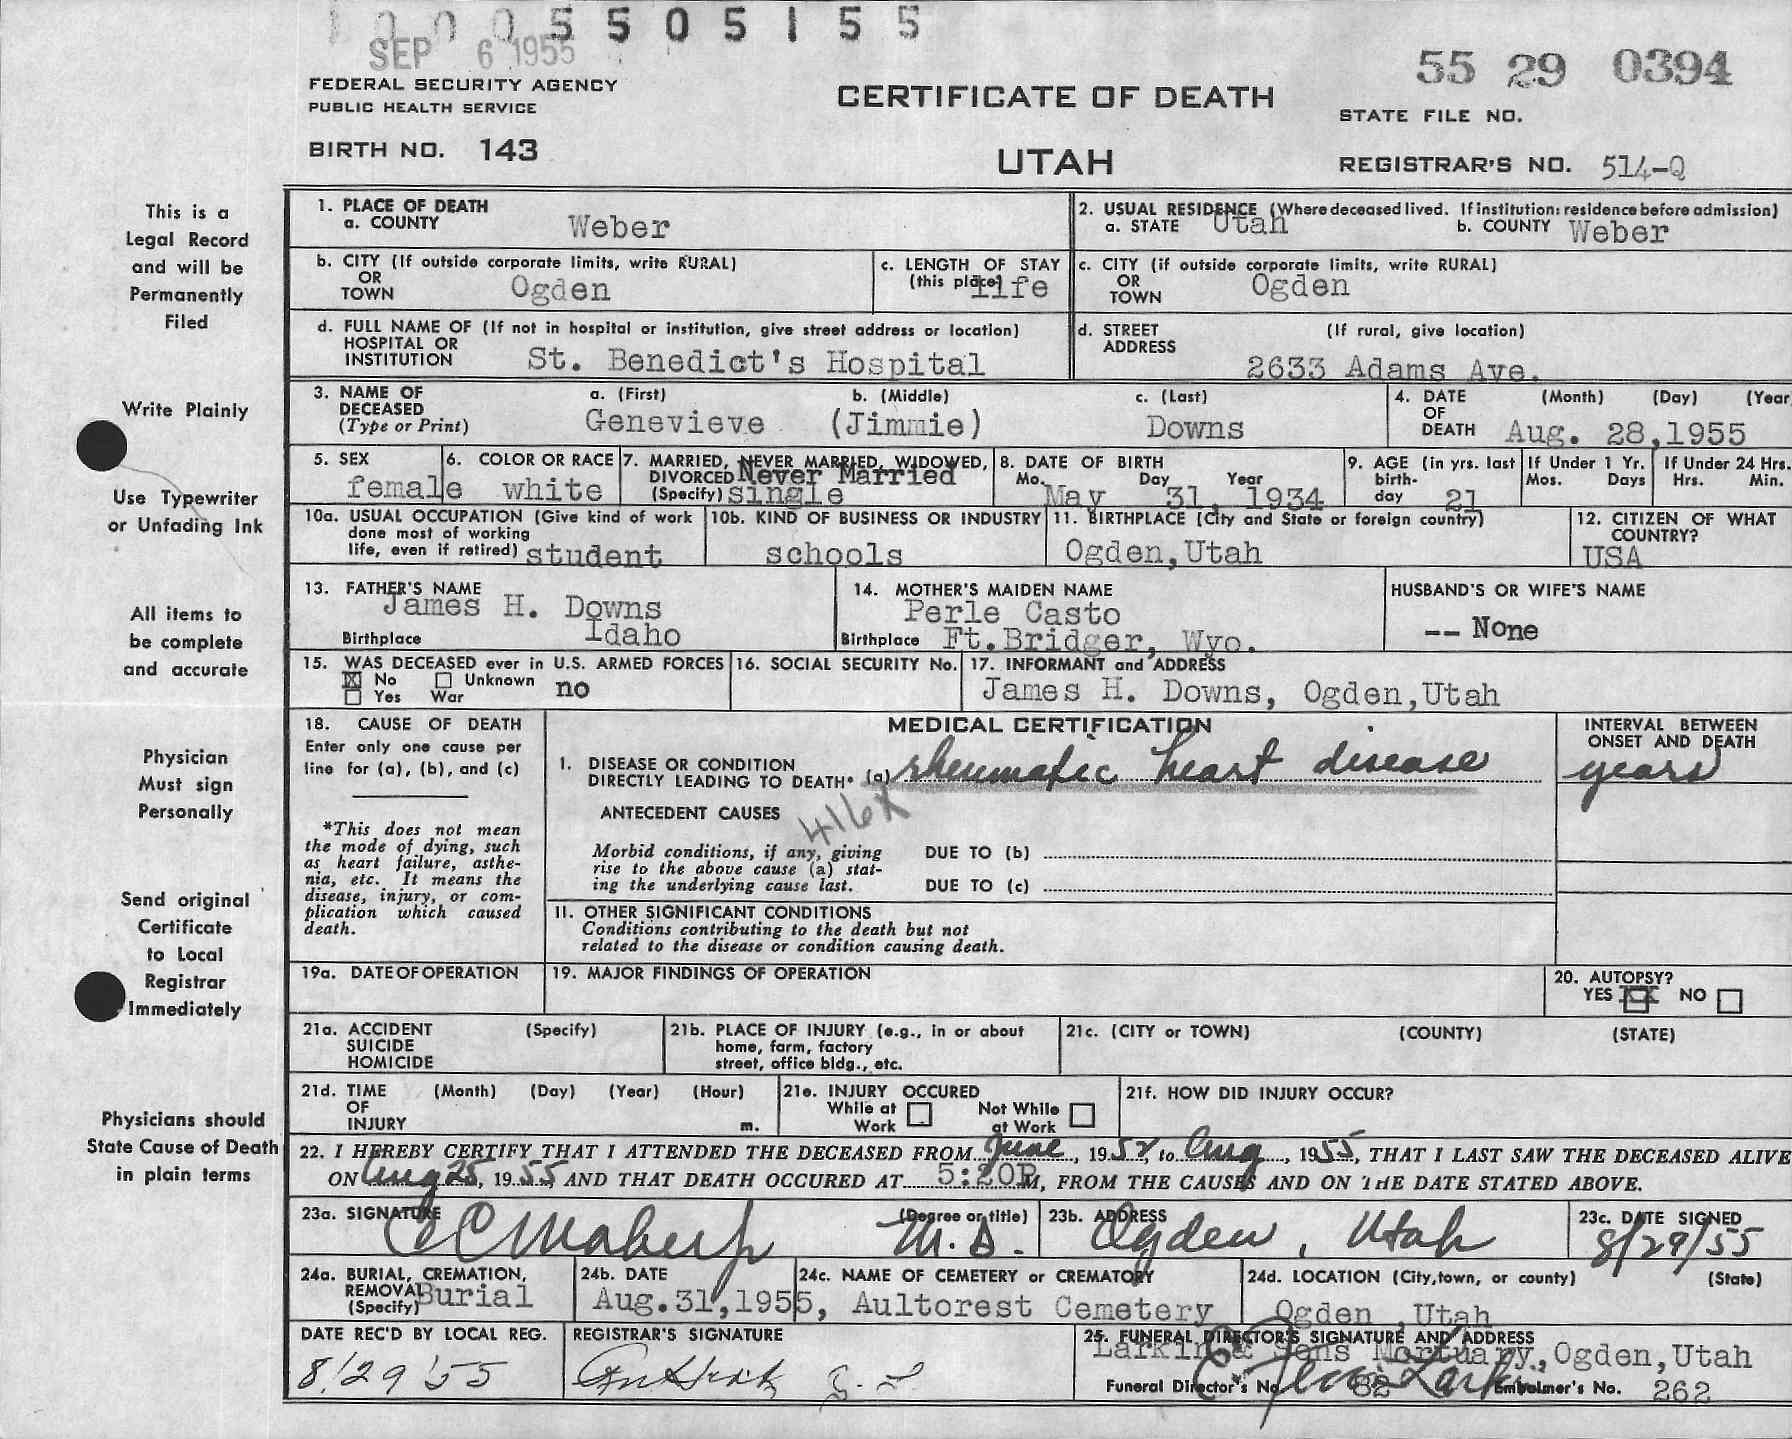 1 0 0 0 5 5 0 5 1 5 5
SEP 6 1955
55 29 0394
FEDERAL SECURITY AGENCY
PUBLIC HEALTH SERVICE
CERTIFICATE OF DEATH
STATE FILE NO.
BIRTH NO. 143
UTAH
REGISTRAR'S NO. 514-Q
This is a
Legal Record
and will be
Permanently
Filed
Write Plainly
Use Typewriter
or Unfading Ink
All items to
be complete
and accurate
Physician
Must sign
Personally
Send original
Certificate
to Local
Registrar
Immediately
Physicians should
State Cause of Death
in plain terms
1. PLACE OF DEATH
a. COUNTY Weber
2. USUAL RESIDENCE (Where deceased lived. If institution: residence before admission)
a. STATE Utah b. COUNTY Weber
b. CITY (If outside corporate limits, write RURAL)
OR
TOWN Ogden
c. LENGTH OF STAY
(this place) life
c. CITY (if outside corporate limits, write RURAL)
OR
TOWN Ogden
d. FULL NAME OF (If not in hospital or institution, give street address or location)
HOSPITAL OR
INSTITUTION St. Benedict's Hospital
d. STREET (If rural, give location)
ADDRESS
2633 Adams Ave.
3. NAME OF
DECEASED
(Type or Print)
a. (First) b. (Middle) c. (Last)
Genevieve (Jimmie) Downs
4. DATE (Month) (Day) (Year
OF
DEATH Aug. 28,1955
5. SEX
female
6. COLOR OR RACE
white
7. MARRIED, NEVER MARRIED, WIDOWED,
DIVORCED Never Married
(Specify) single
8. DATE OF BIRTH
Mo. Day Year
May 31, 1934
9. AGE (in yrs. last
birth-
day 21
If Under 1 Yr.
Mos. Days
If Under 24 Hrs.
Hrs. Min.
10a. USUAL OCCUPATION (Give kind of work
done most of working
life, even if retired) student
10b. KIND OF BUSINESS OR INDUSTRY
schools
11. BIRTHPLACE (City and State or foreign country)
Ogden,Utah
12. CITIZEN OF WHAT
COUNTRY?
USA
13. FATHER'S NAME
James H. Downs
Birthplace Idaho
14. MOTHER'S MAIDEN NAME
Perle Casto
Birthplace Ft.Bridger, Wyo.
HUSBAND'S OR WIFE'S NAME
-- None
15. WAS DECEASED ever in U.S. ARMED FORCES
X No Unknown no
Yes War
16. SOCIAL SECURITY No.
17. INFORMANT and ADDRESS
James H. Downs, Ogden,Utah
18. CAUSE OF DEATH
Enter only one cause per
line for (a), (b), and (c)
*This does not mean
the mode of dying, such
as heart failure, asthe-
nia, etc. It means the
disease, injury, or com-
plication which caused
death.
MEDICAL CERTIFICATION
INTERVAL BETWEEN
ONSET AND DEATH
I. DISEASE OR CONDITION
DIRECTLY LEADING TO DEATH* (a) rheumatic heart disease years
ANTECEDENT CAUSES 416X
Morbid conditions, if any, giving
rise to the above cause (a) stat-
ing the underlying cause last.
DUE TO (b)
DUE TO (c)
II. OTHER SIGNIFICANT CONDITIONS
Conditions contributing to the death but not
related to the disease or condition causing death.
19a. DATE OF OPERATION
19. MAJOR FINDINGS OF OPERATION
20. AUTOPSY?
YES XX NO
21a. ACCIDENT (Specify)
SUICIDE
HOMICIDE
21b. PLACE OF INJURY (e.g., in or about
home, farm, factory
street, office bldg., etc.
21c. (CITY or TOWN) (COUNTY) (STATE)
21d. TIME (Month) (Day) (Year) (Hour)
OF
INJURY m.
21e. INJURY OCCURED
While at Not While
Work at Work
21f. HOW DID INJURY OCCUR?
22. I HEREBY CERTIFY THAT I ATTENDED THE DECEASED FROM June, 1952, to Aug, 1955, THAT I LAST SAW THE DECEASED ALIVE
ON Aug 25, 1955, AND THAT DEATH OCCURED AT 5:20P M, FROM THE CAUSES AND ON THE DATE STATED ABOVE.
23a. SIGNATURE (Degree or title)
M.D.
23b. ADDRESS
Ogden, Utah
23c. DATE SIGNED
8/29/55
24a. BURIAL, CREMATION,
REMOVAL
(Specify) Burial
24b. DATE
Aug.31,1955,
24c. NAME OF CEMETERY or CREMATORY
Aultorest Cemetery
24d. LOCATION (City,town, or county) (State)
Ogden ,Utah
DATE REC'D BY LOCAL REG.
8/29/55
REGISTRAR'S SIGNATURE
25. FUNERAL DIRECTOR'S SIGNATURE AND ADDRESS
Larkin & Sons Mortuary,Ogden,Utah
Funeral Director's No. 82 Embalmer's No. 262